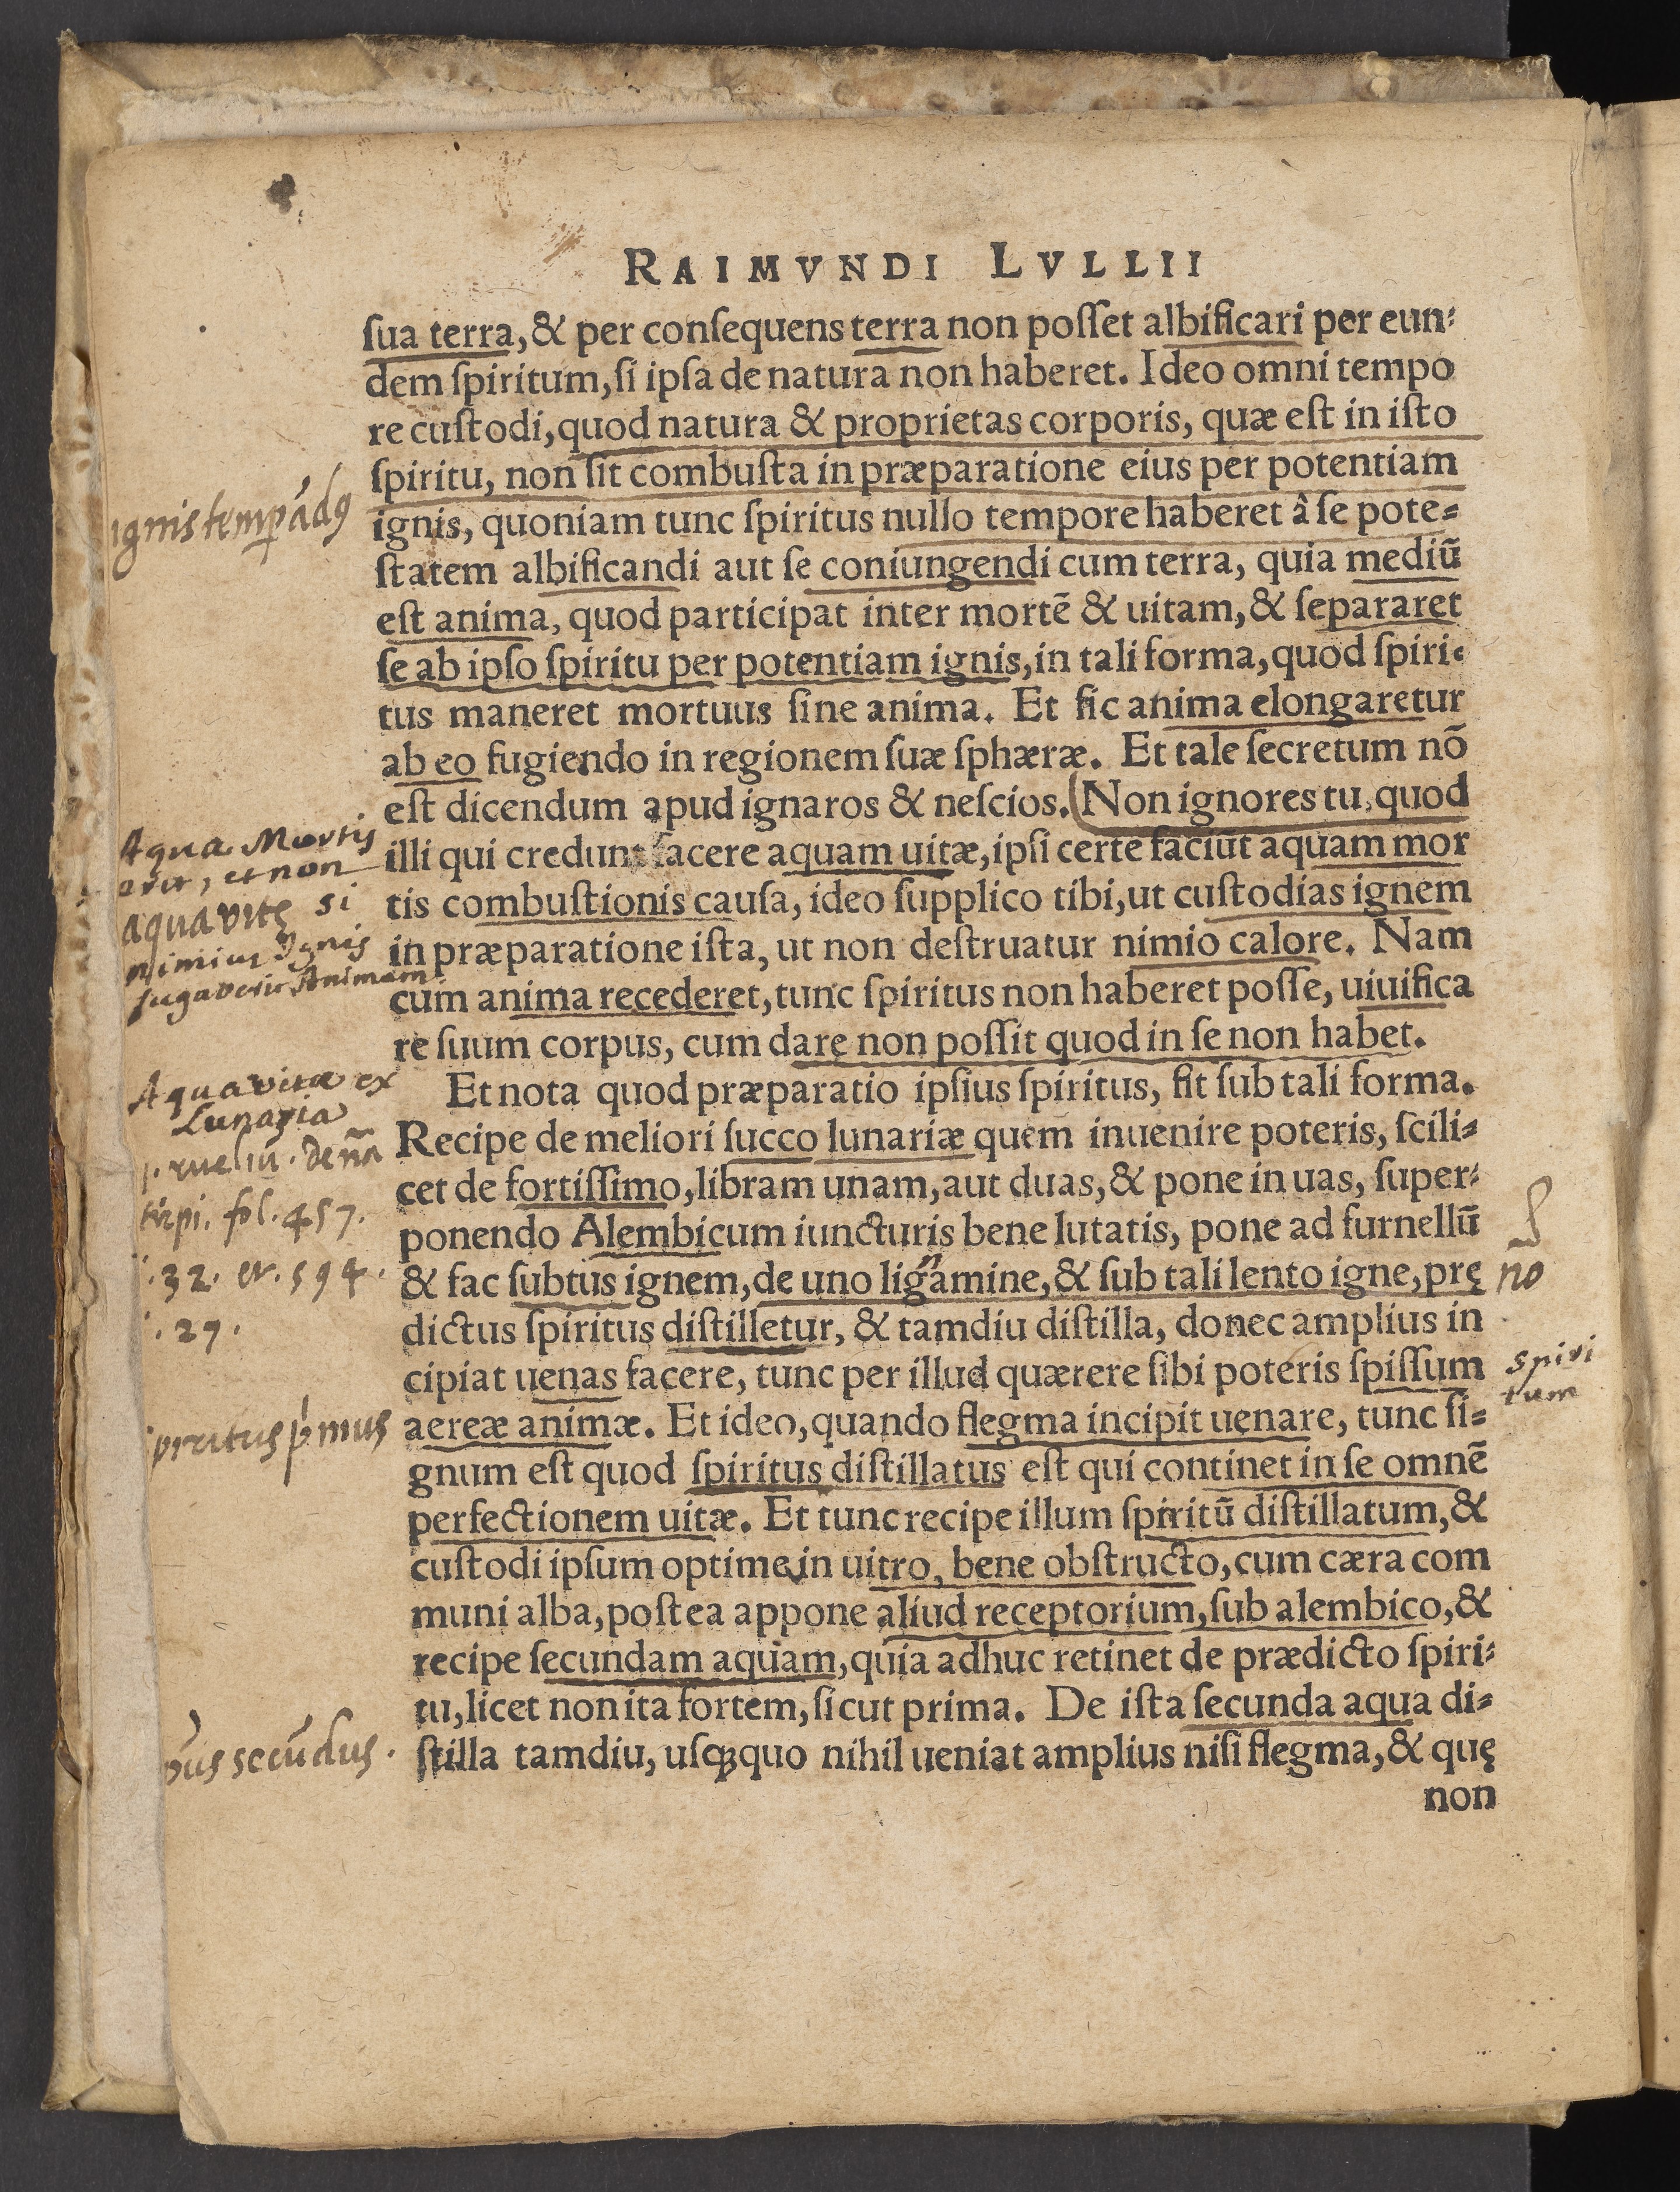 RAIMVNDI LVLLII
ſua terra, & per conſequens terra non poſſet albificari per eun-
dem ſpiritum, ſi ipſa de natura non haberet. Ideo omni tempo
re cuſtodi, quod natura & proprietas corporis, quæ eſt in iſto
ſpiritu, non ſit combuſta in præparatione eius per potentiam
ignis, quoniam tunc ſpiritus nullo tempore haberet â ſe pote-
ſtatem albificandi aut ſe coniungendi cum terra, quia mediū
eſt anima, quod participat inter mortē & uitam, & ſepararet
ſe ab ipſo ſpiritu per potentiam ignis, in tali forma, quod ſpiri-
tus maneret mortuus ſine anima. Et ſic anima elongaretur
ab eo fugiendo in regionem ſuæ ſphæræ. Et tale ſecretum nō
eſt dicendum apud ignaros & neſcios. (Non ignores tu, quod
illi qui credunt facere aquam uitæ, ipſi certe faciūt aquam mor
tis combuſtionis cauſa, ideo ſupplico tibi, ut cuſtodias ignem
in præparatione iſta, ut non deſtruatur nimio calore. Nam
cum anima recederet, tunc ſpiritus non haberet poſſe, uiuifica
re ſuum corpus, cum dare non poſſit quod in ſe non habet.
Et nota quod præparatio ipſius ſpiritus, fit ſub tali forma.
Recipe de meliori ſucco lunariæ quem inuenire poteris, ſcili-
cet de fortiſſimo, libram unam, aut duas, & pone in uas, ſuper-
ponendo Alembicum iuncturis bene lutatis, pone ad furnellū
& fac ſubtus ignem, de uno ligamine, & ſub tali lento igne, prę
dictus ſpiritus diſtilletur, & tamdiu diſtilla, donec amplius in
cipiat uenas facere, tunc per illud quærere ſibi poteris ſpiſſum
aereæ animæ. Et ideo, quando flegma incipit uenare, tunc ſi-
gnum eſt quod ſpiritus diſtillatus eſt qui continet in ſe omnē
perfectionem uitæ. Et tunc recipe illum ſpiritū diſtillatum, &
cuſtodi ipſum optime in uitro, bene obſtructo, cum cæra com
muni alba, poſtea appone aliud receptorium, ſub alembico, &
recipe ſecundam aquam, quia adhuc retinet de prædicto ſpiri-
tu, licet non ita fortem, ſicut prima. De iſta ſecunda aqua di-
ſtilla tamdiu, uſq̃quo nihil ueniat amplius niſi flegma, & quę
non
ignis temꝑādꝰ
Aqua Mortis
erit, et non
aqua vitę si
nimius Ignis
fugaverit Animam
Aqua vitæ ex
Lunaria
de nā
fol. 457.
32. et. 594.
.27.
pritus p'mus
us secūdus.
n
no
spiri
tum